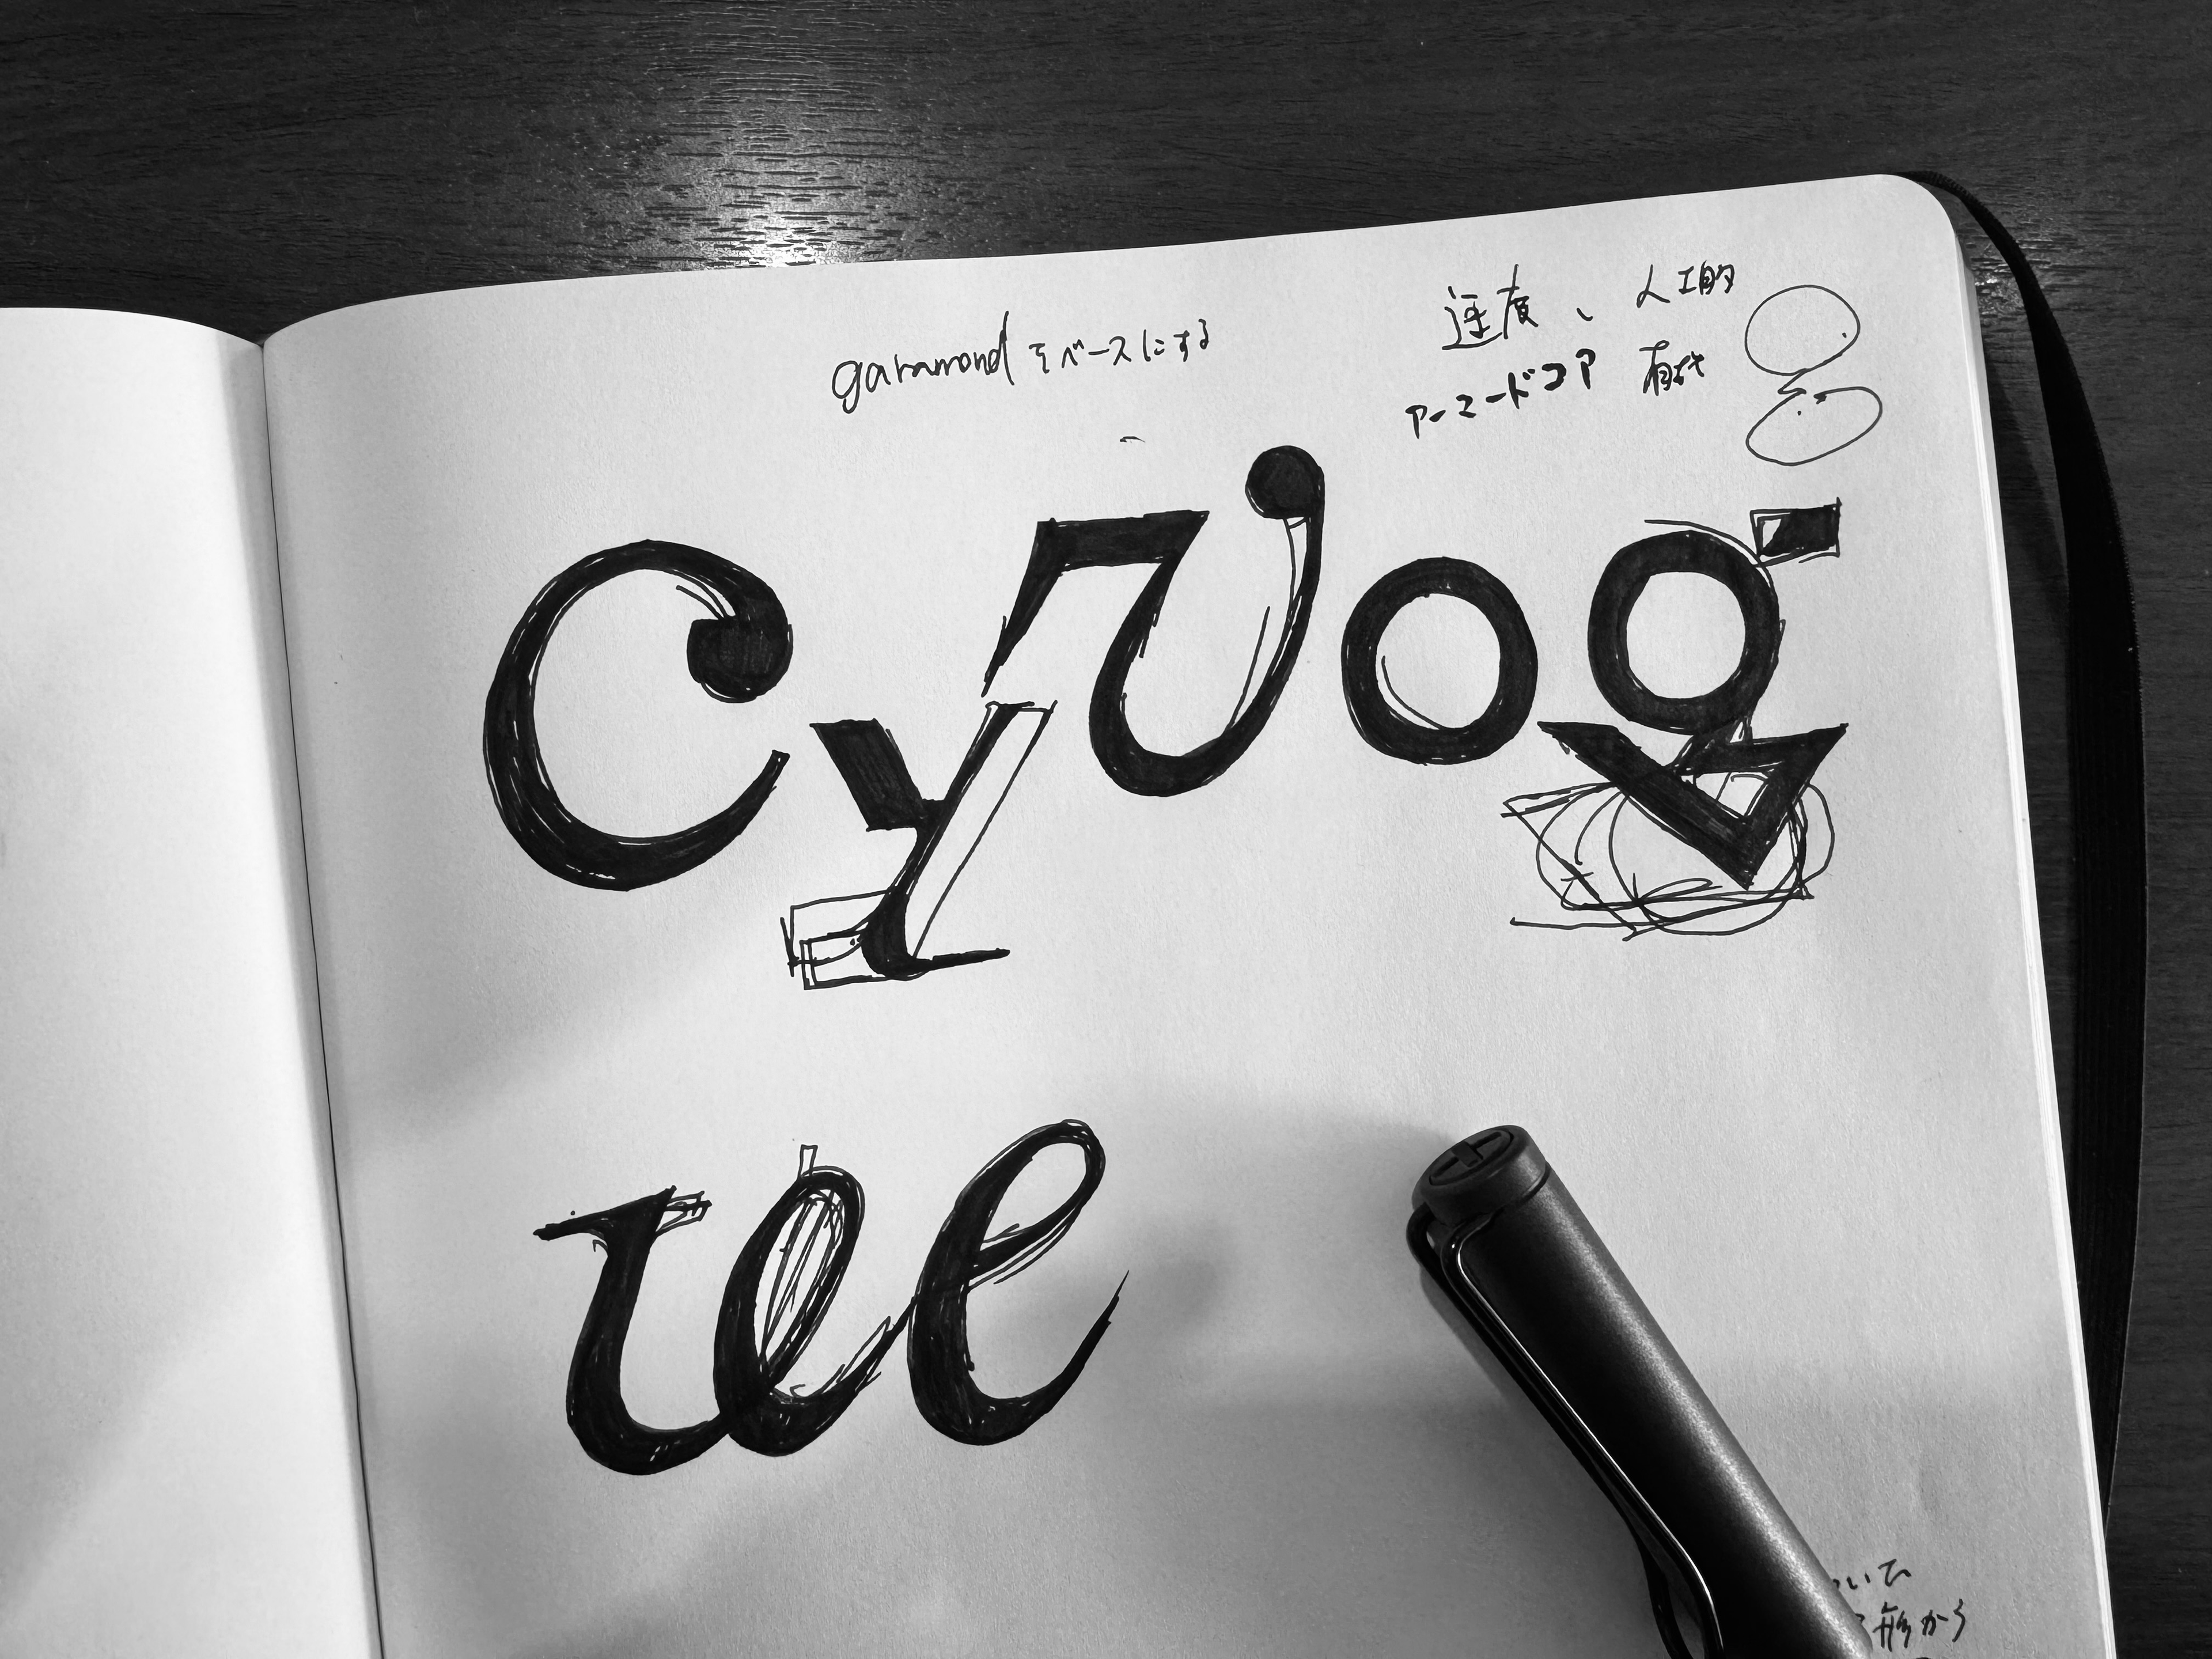 garamond をベースにする
速度、人工的
アーマードコア 有機
cyvog
we
いて
形から